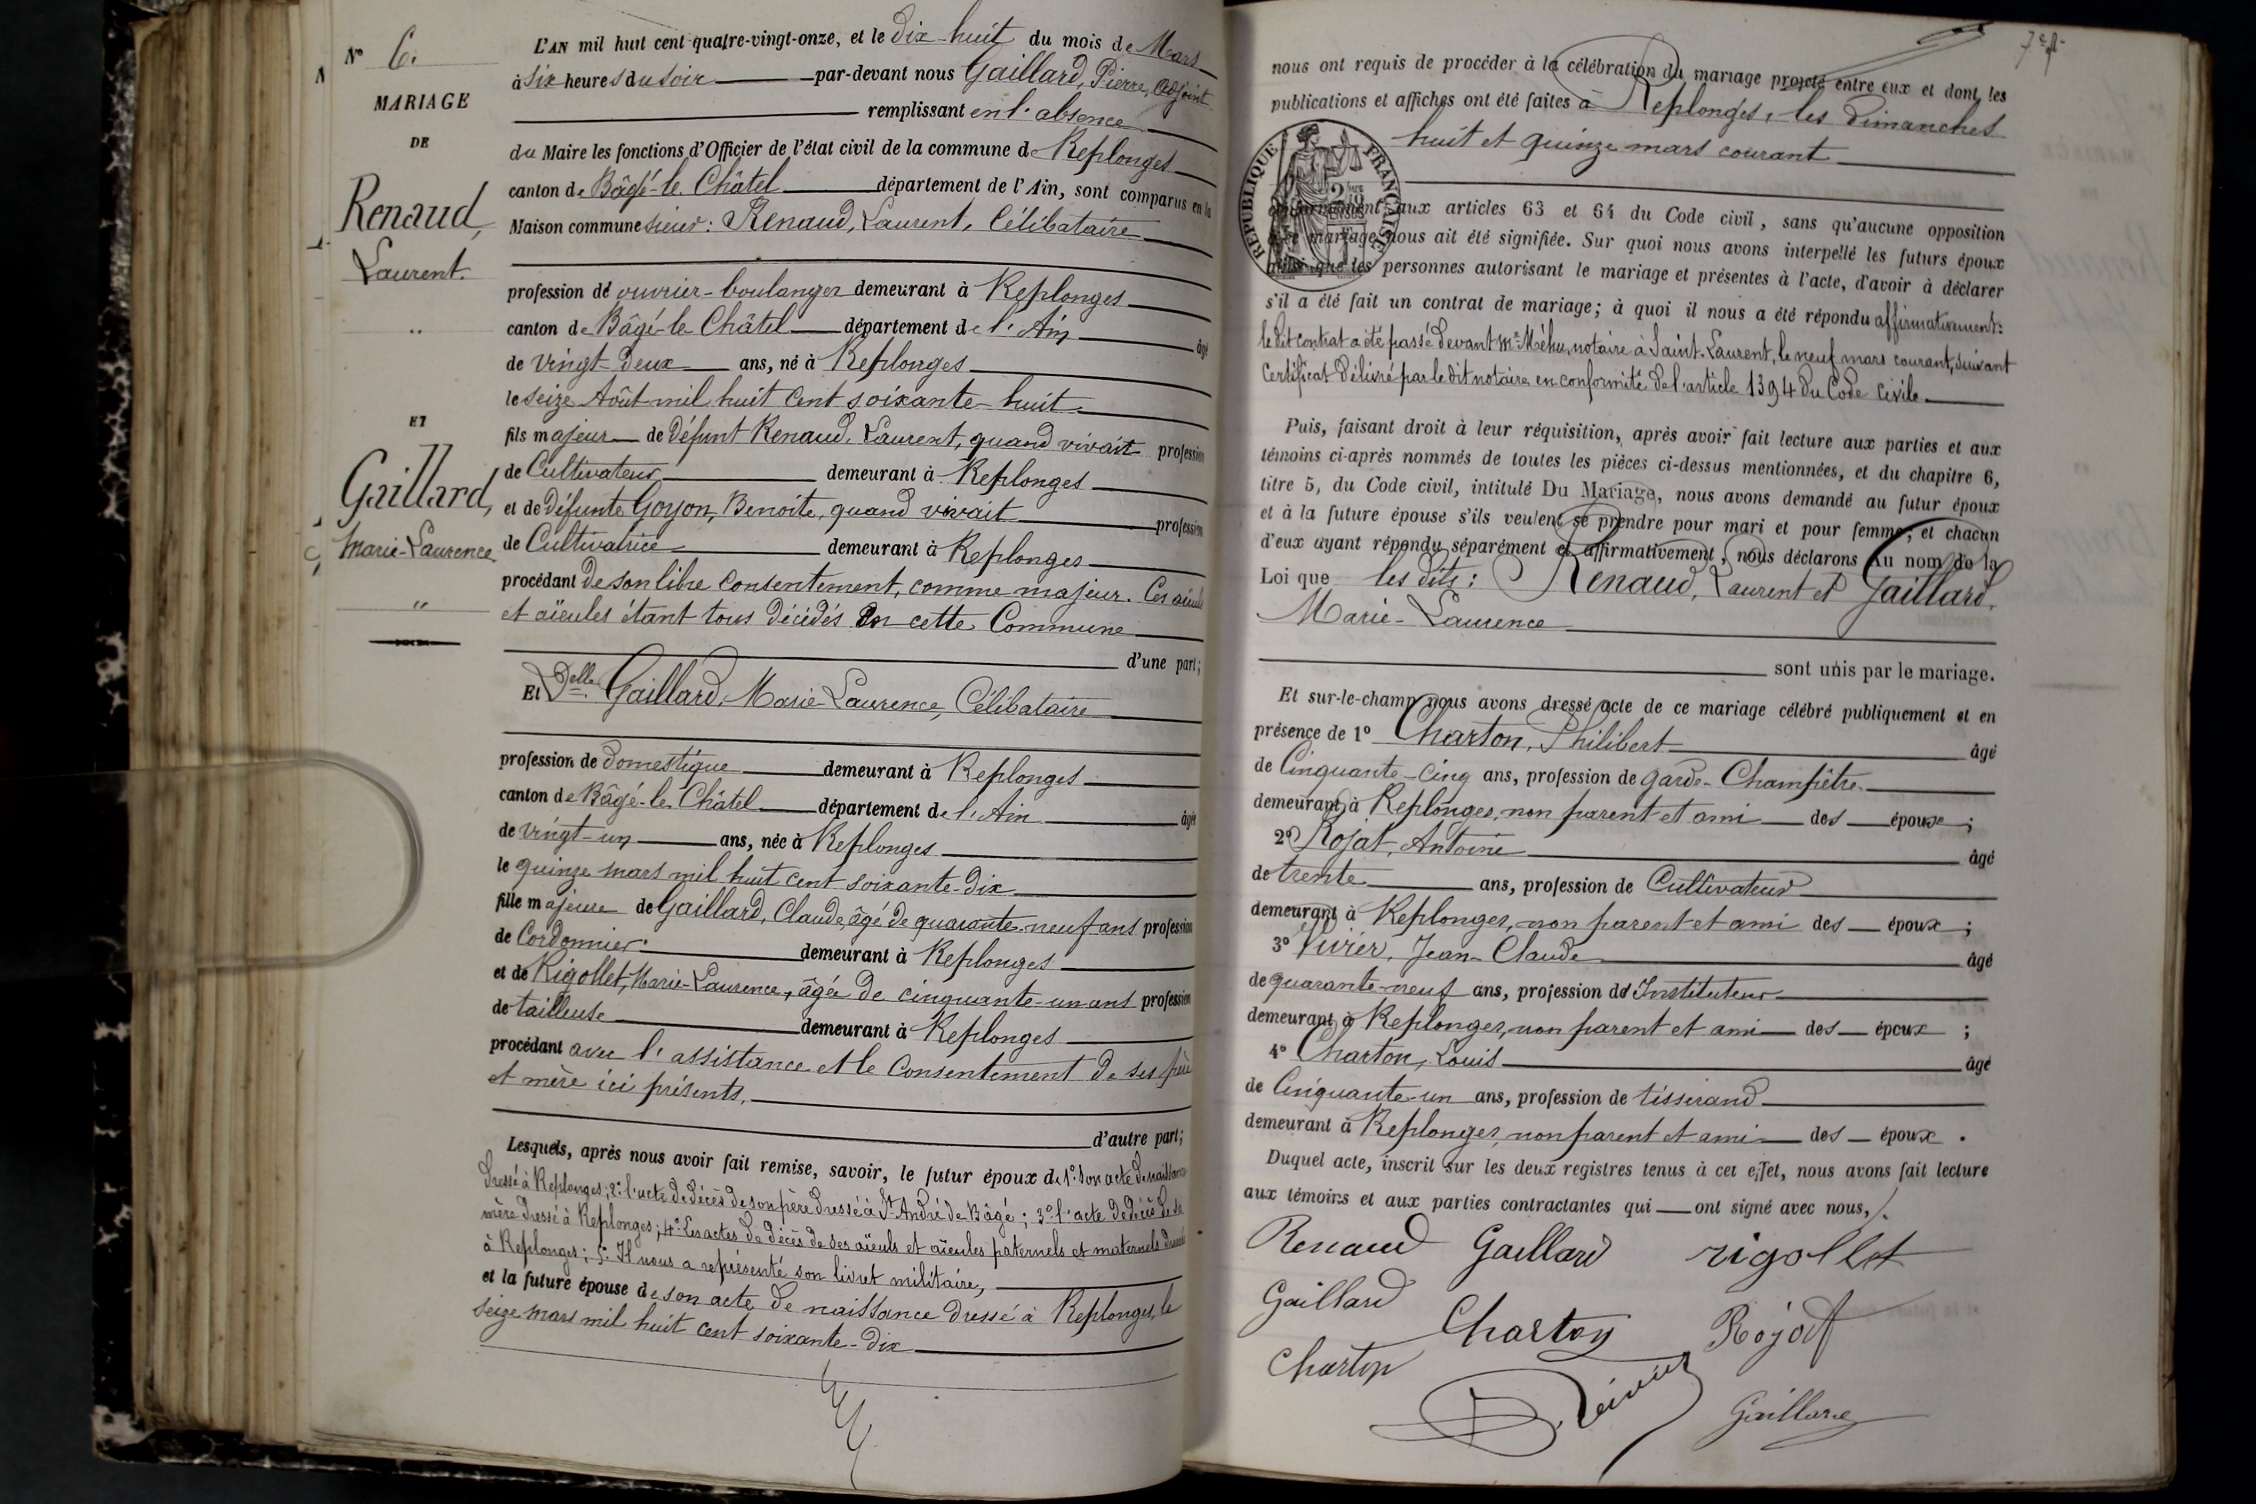 N° 6.
MARIAGE
DE
Renaud,
Laurent.
"
ET
Gaillard,
Marie-Laurence
"
L'AN mil huit cent quatre-vingt-onze, et le dix-huit du mois de Mars
à six heures du soir par-devant nous Gaillard, Pierre, adjoint
remplissant en l'absence
du Maire les fonctions d'Officier de l'état civil de la commune de Replonges
canton de Bâgé-le Châtel département de l'Ain, sont comparus en la
Maison commune sieur : Renaud, Laurent, Célibataire
profession de ouvrier-boulanger demeurant à Replonges
canton de Bâgé-le Châtel département de l'Ain âgé
de vingt-deux ans, né à Replonges
le seize Août mil huit cent soixante-huit
fils majeur de défunt Renaud, Laurent, quand vivait profession
de Cultivateur demeurant à Replonges
et de défunte Goyon, Benoite, quand vivait profession
de Cultivatrice demeurant à Replonges
procédant de son libre consentement, comme majeur. Ces aïeuls
et aïeules étant tous décédés en cette Commune
d'une part;
Et Delle Gaillard, Marie-Laurence, Célibataire
profession de domestique demeurant à Replonges
canton de Bâgé-le-Châtel département de l'Ain âgée
de vingt-un ans, née à Replonges
le quinze mars mil huit cent soixante-dix
fille majeure de Gaillard, Claude, âgé de quarante-neuf ans profession
de Cordonnier demeurant à Replonges
et de Rigollet, Marie-Laurence, âgée de cinquante-un ans profession
de tailleuse demeurant à Replonges
procédant avec l'assistance et le Consentement de ses père
et mère ici présents.
d'autre part;
Lesquels, après nous avoir fait remise, savoir, le futur époux de 1° Son acte de naissance
dressé à Replonges; 2° l'acte de décès de son père dressé à St André de Bâgé; 3° l'acte de décès de sa
mère dressé à Replonges; 4° Les actes de décès de ses aïeuls et aïeules paternels et maternels dressés
à Replonges; 5° Il nous a représenté son livret militaire,
et la future épouse de son acte de naissance dressé à Replonges, le
seize mars mil huit cent soixante-dix
7e f.
nous ont requis de procéder à la célébration du mariage projeté entre eux et dont les
publications et affiches ont été faites à Replonges, les Dimanches
huit et quinze mars courant
RÉPUBLIQUE FRANÇAISE
conformément aux articles 63 et 64 du Code civil, sans qu'aucune opposition
à ce mariage nous ait été signifiée. Sur quoi nous avons interpellé les futurs époux
ainsi que les personnes autorisant le mariage et présentes à l'acte, d'avoir à déclarer
s'il a été fait un contrat de mariage; à quoi il nous a été répondu affirmativement:
le dit contrat a été passé devant Me Méhu, notaire à Saint-Laurent, le neuf mars courant, suivant
Certificat délivré par le dit notaire en conformité de l'article 1394 du Code Civile.
Puis, faisant droit à leur réquisition, après avoir fait lecture aux parties et aux
témoins ci-après nommés de toutes les pièces ci-dessus mentionnées, et du chapitre 6,
titre 5, du Code civil, intitulé Du Mariage, nous avons demandé au futur époux
et à la future épouse s'ils veulent se prendre pour mari et pour femme; et chacun
d'eux ayant répondu séparément et affirmativement, nous déclarons Au nom de la
Loi que les dits: Renaud, Laurent et Gaillard,
Marie-Laurence
sont unis par le mariage.
Et sur-le-champ nous avons dressé acte de ce mariage célébré publiquement et en
présence de 1° Charton, Philibert âgé
de Cinquante-cinq ans, profession de garde-Champêtre
demeurant à Replonges, non parent et ami des époux ;
2° Rojat, Antoine âgé
de trente ans, profession de Cultivateur
demeurant à Replonges, non parent et ami des époux ;
3° Vivier, Jean-Claude âgé
de quarante-neuf ans, profession d'Instituteur
demeurant à Replonges, non parent et ami des époux ;
4° Charton, Louis âgé
de Cinquante-un ans, profession de tisserand
demeurant à Replonges, non parent et ami des époux .
Duquel acte, inscrit sur les deux registres tenus à cet effet, nous avons fait lecture
aux témoins et aux parties contractantes qui ont signé avec nous,
Renaud Gaillard rigollet
Gaillard Charton Rojat
Charton Vivier Gaillard